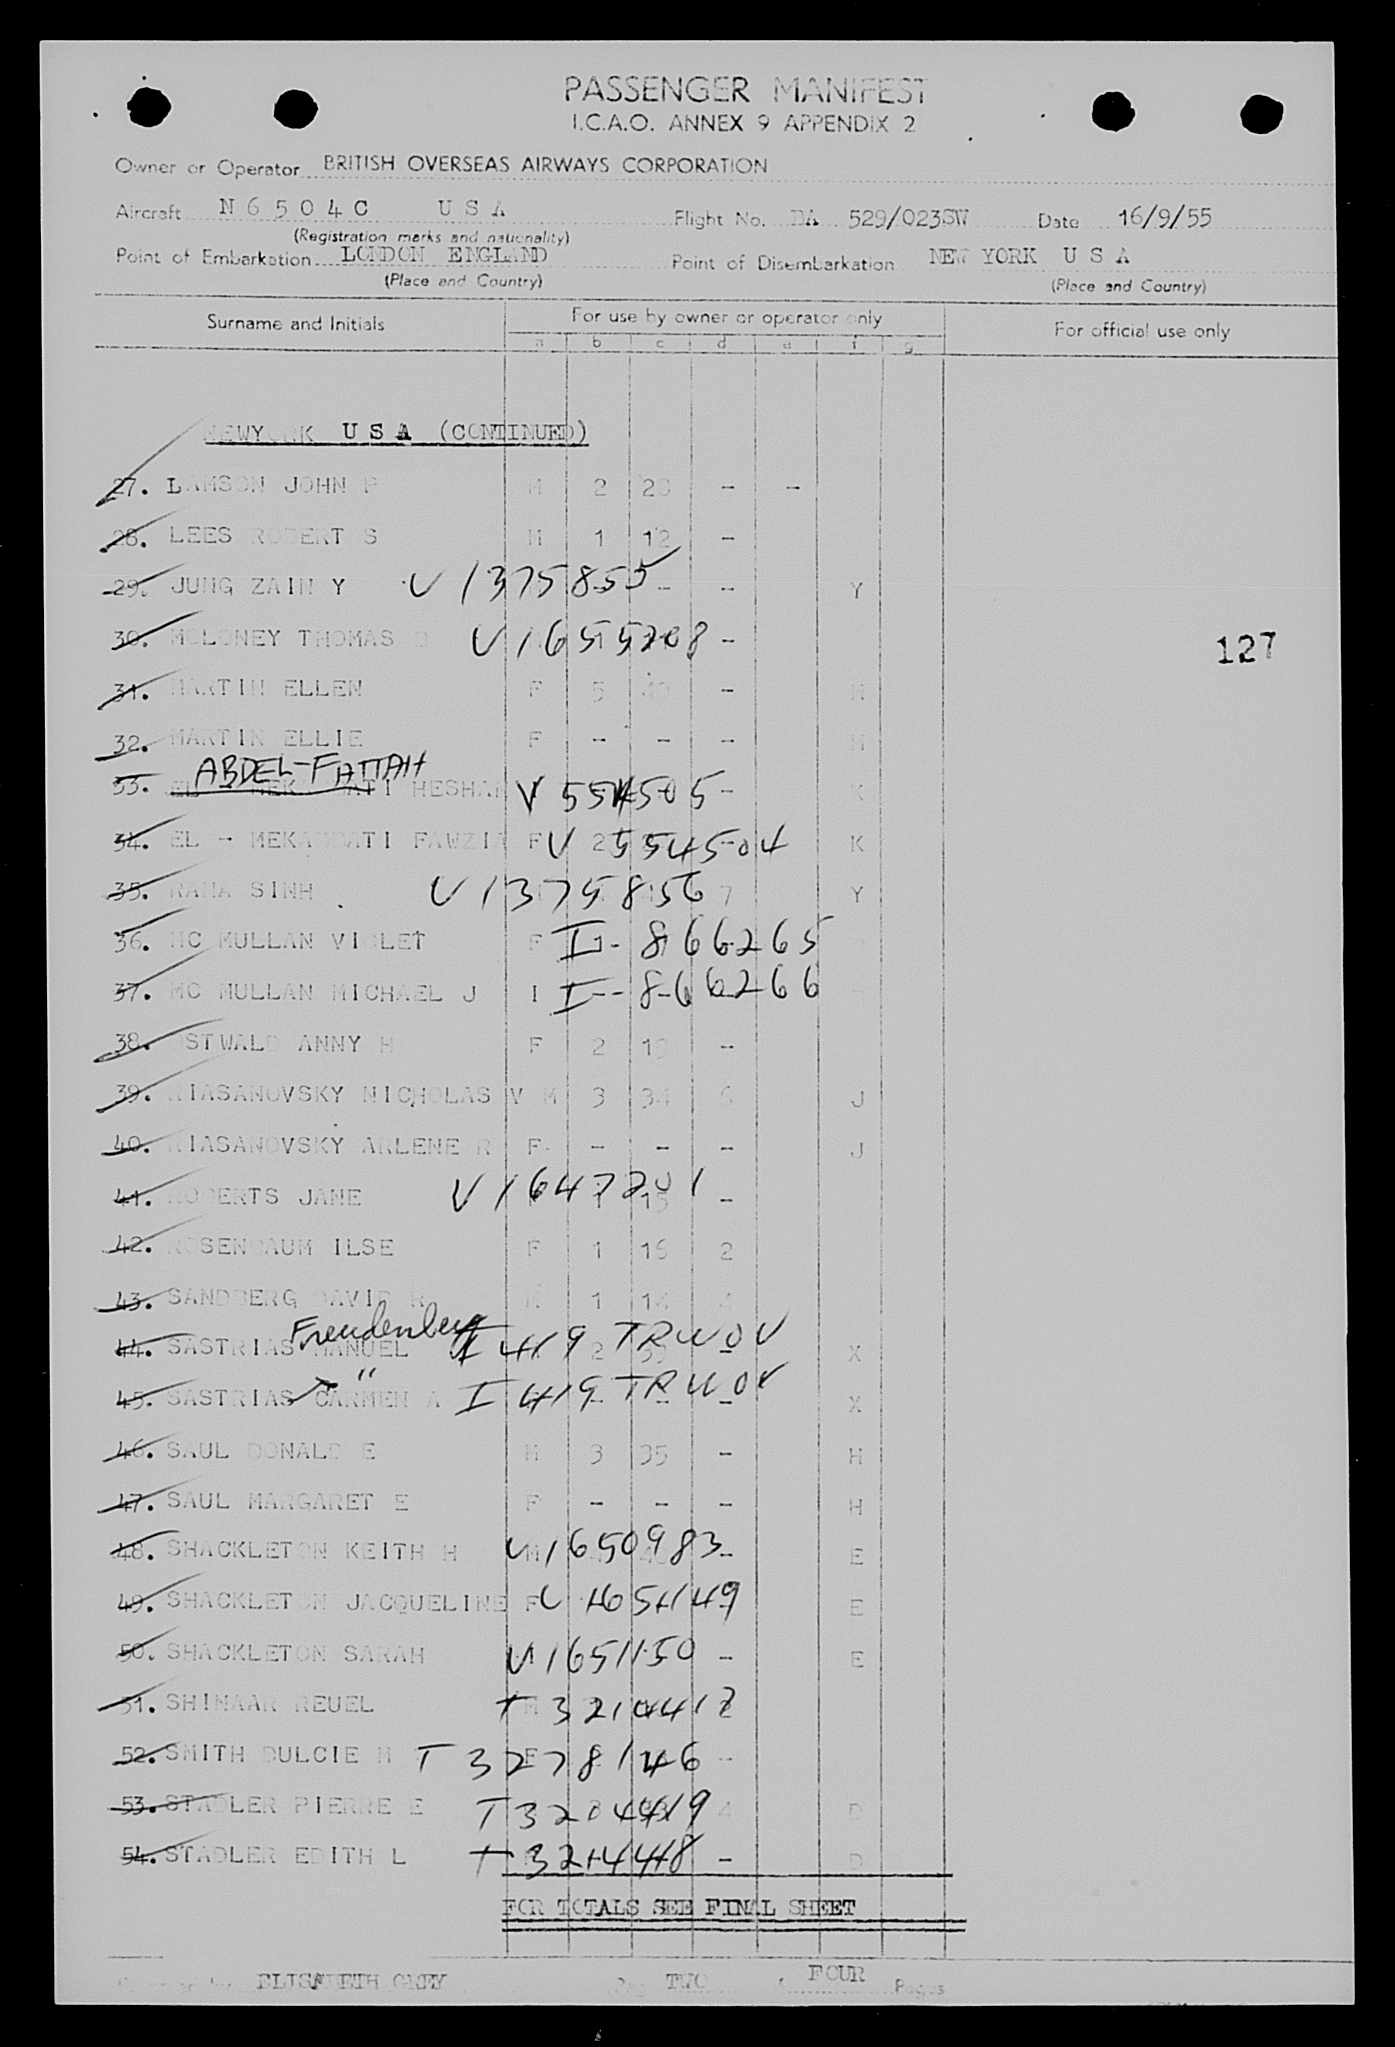 PASSENGER MANIFEST
I.C.A.O. ANNEX 9 APPENDIX 2
Owner or Operator BRITISH OVERSEAS AIRWAYS CORPORATION
Aircraft N6504C USA Flight No. BA 529/023SW Date 16/9/55
(Registration marks and nationality)
Point of Embarkation LONDON ENGLAND Point of Disembarkation NEW YORK USA
(Place and Country) (Place and Country)
Surname and Initials For use by owner or operator only For official use only
a b c d e f g
NEWYORK USA (CONTINUED)
27. LAMSON JOHN P M 2 28 - -
28. LEES ROBERT S M 1 12 -
29. JUNG ZAIN Y V 1375855 - - Y
30. MOLONEY THOMAS V 1655208 -
127
31. MARTIN ELLEN F 5 - M
32. MARTIN ELLIE F - - - M
ABDEL-FATTAH
33. HESHAM V 554505 - K
34. EL - MEKAWATI FAWZIA F V 2 554504 K
35. RAMA SINH V 1375856 7 Y
36. MC MULLAN VIOLET F I - 866265
37. MC MULLAN MICHAEL J I I - 866266
38. OSTWALD ANNY H F 2 19 -
39. RIASANOVSKY NICHOLAS V M 3 34 6 J
40. RIASANOVSKY ARLENE R F - - - J
41. ROBERTS JANE V 1647201 1 15 -
42. ROSENBAUM ILSE F 1 16 2
43. SANDBERG DAVID M 1 14
Freudenberg
44. SASTRIAS MANUEL I 419 TRWOV 2 - X
"
45. SASTRIAS CARMEN A I 419 TRWOV - - - X
46. SAUL DONALD E M 3 35 - H
47. SAUL MARGARET E F - - - H
48. SHACKLETON KEITH H M V 1650983 - E
49. SHACKLETON JACQUELINE F V 1651149 E
50. SHACKLETON SARAH V 1651150 - E
51. SHIMAAR REUEL M T 3214417
52. SMITH DULCIE M T 3278146 -
53. STADLER PIERRE E T 3204419 4 D
54. STADLER EDITH L T 3214418 - D
FOR TOTALS SEE FINAL SHEET
ELISABETH TWO FOUR Pages